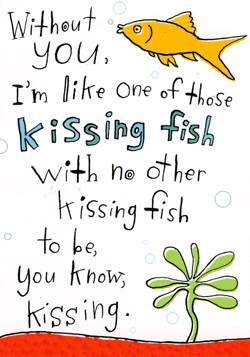 Without
YOU,
I'm like one of those
kissing fish
with no other
kissing fish
to be,
you know,
kissing.